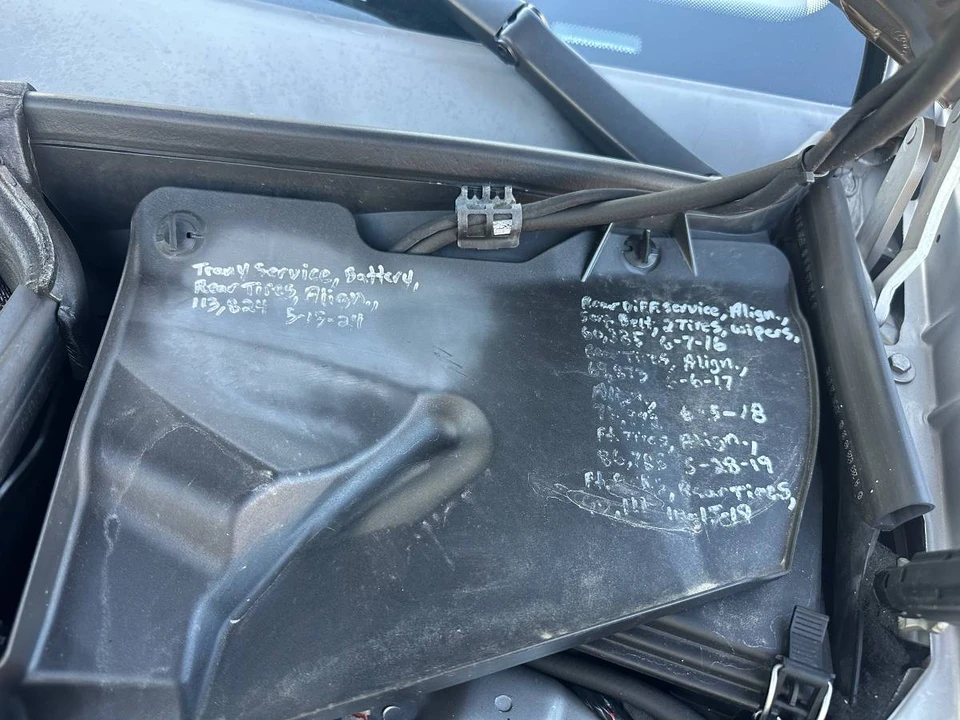 Trany Service, Battery,
Rear Tires, Align.,
113,824 5-15-24
Rear Diff. Service, Align.,
Belt, 2 Tires, Wipers,
6-7-16
Rear Tires, Align.,
-6-17
-5-18
Ft. Tires, Align.,
86,785 5-28-19
Rear Tires,